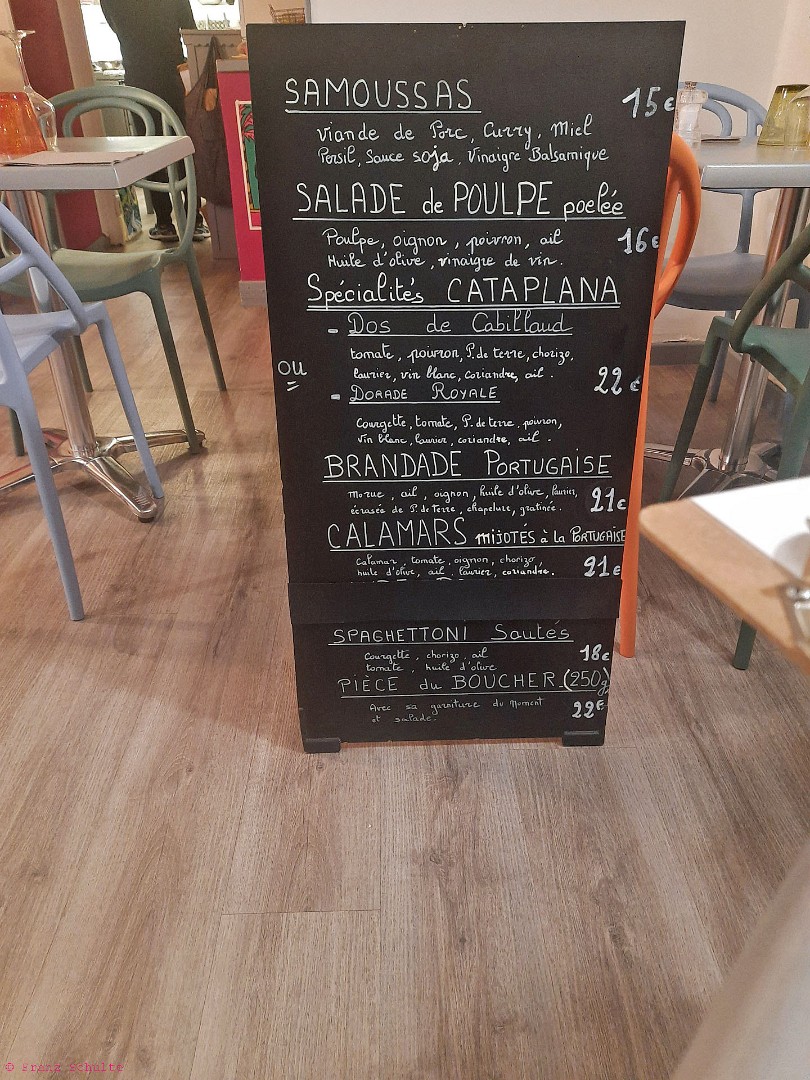 SAMOUSSAS 15€
viande de Porc, Curry, Miel
Persil, Sauce soja, Vinaigre Balsamique
SALADE de POULPE poelée
Poulpe, oignon, poivron, ail 16€
Huile d'olive, vinaigre de vin.
Spécialités CATAPLANA
- Dos de Cabillaud
tomate, poivron, P. de terre, chorizo,
OU laurier, vin blanc, coriandre, ail. 22€
- DORADE ROYALE
Courgette, tomate, P. de terre, poivron,
Vin blanc, laurier, coriandre, ail.
BRANDADE PORTUGAISE
Morue, ail, oignon, huile d'olive, laurier, 21€
écrasée de P. de Terre, chapelure, gratinée.
CALAMARS MIJOTÉS à la PORTUGAISE
Calamar, tomate, oignon, chorizo
huile d'olive, ail, laurier, coriandre. 21€
SPAGHETTONI Sautés
Courgette, chorizo, ail 18€
tomate, huile d'olive
PIÈCE du BOUCHER (250g)
Avec sa garniture du Moment 22€
et salade.
© Franz Schulte